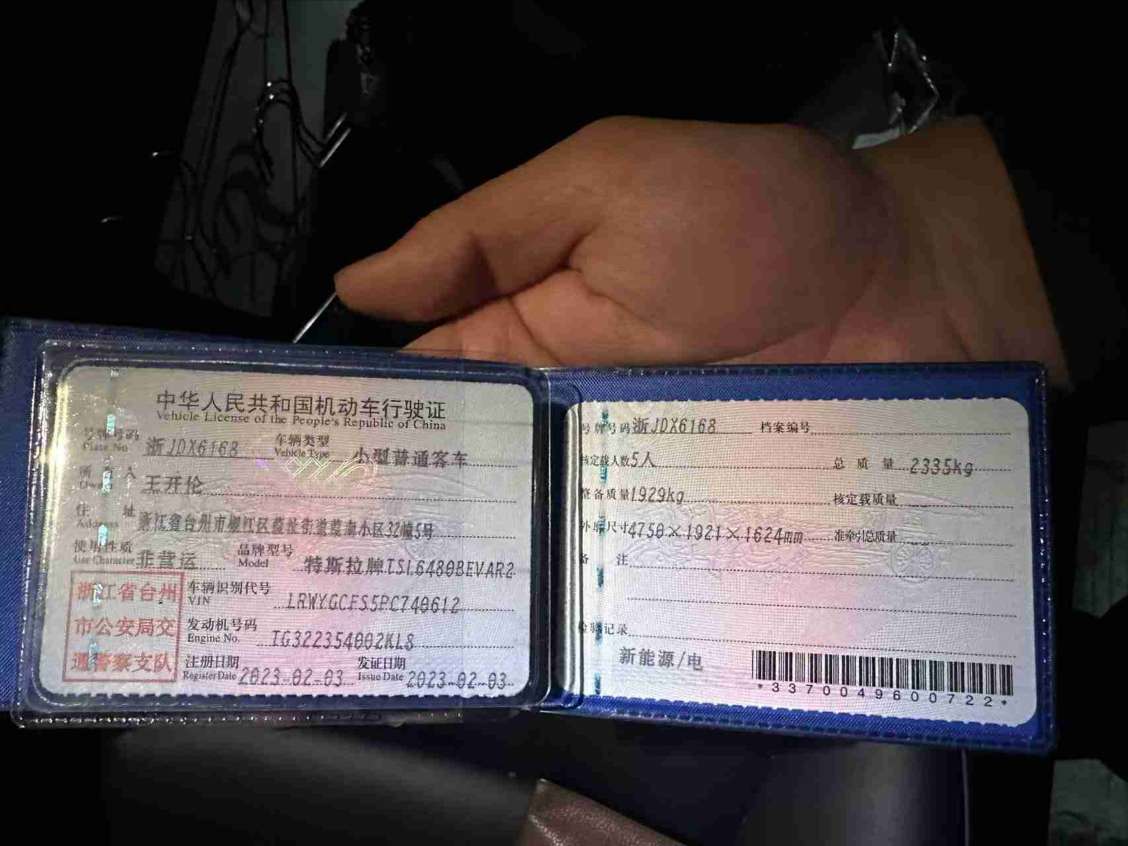 中华人民共和国机动车行驶证
Vehicle License of the People's Republic of China
号牌号码 浙JDX6168 车辆类型 小型普通客车
Plate No. Vehicle Type
所有人 王开伦
住址 浙江省台州市椒江区葭沚街道葭南小区32幢5号
Address
使用性质 非营运 品牌型号 特斯拉牌TSL6480BEVAR2
Use Character Model
浙江省台州
市公安局交
通警察支队
车辆识别代号 LRWYGCFS5PC740612
VIN
发动机号码 TG322354002KL8
Engine No.
注册日期 2023-02-03 发证日期 2023-02-03
Register Date Issue Date
号牌号码 浙JDX6168 档案编号
核定载人数 5人 总质量 2335kg
整备质量 1929kg 核定载质量
外廓尺寸 4750×1921×1624mm 准牵引总质量
备注
检验记录
新能源/电
*3370049600722*